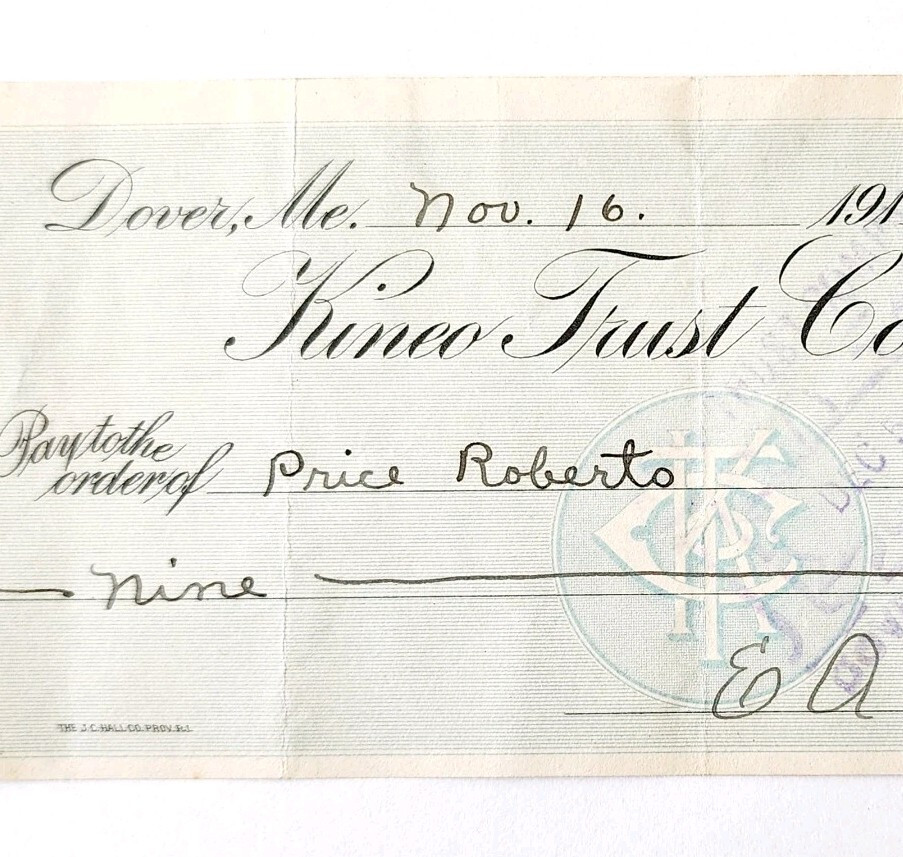 Dover, Me. Nov. 16. 191
Kineo Trust Co
Pay to the
order of Price Roberto
Nine
E A
THE J.C. HALL CO. PROV. R.I.
DEC